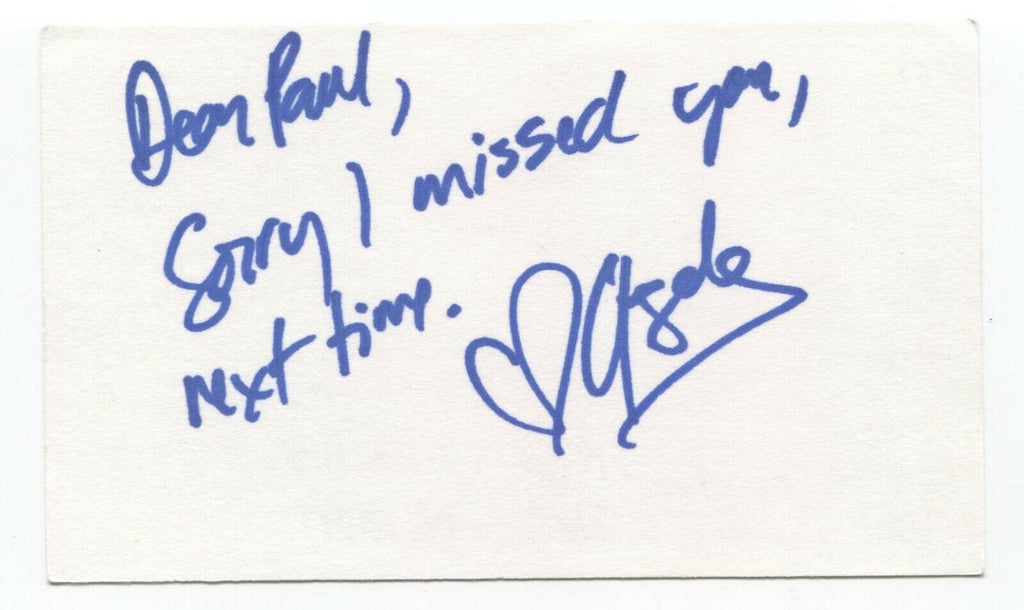 Dear Paul,
Sorry I missed you,
next time.